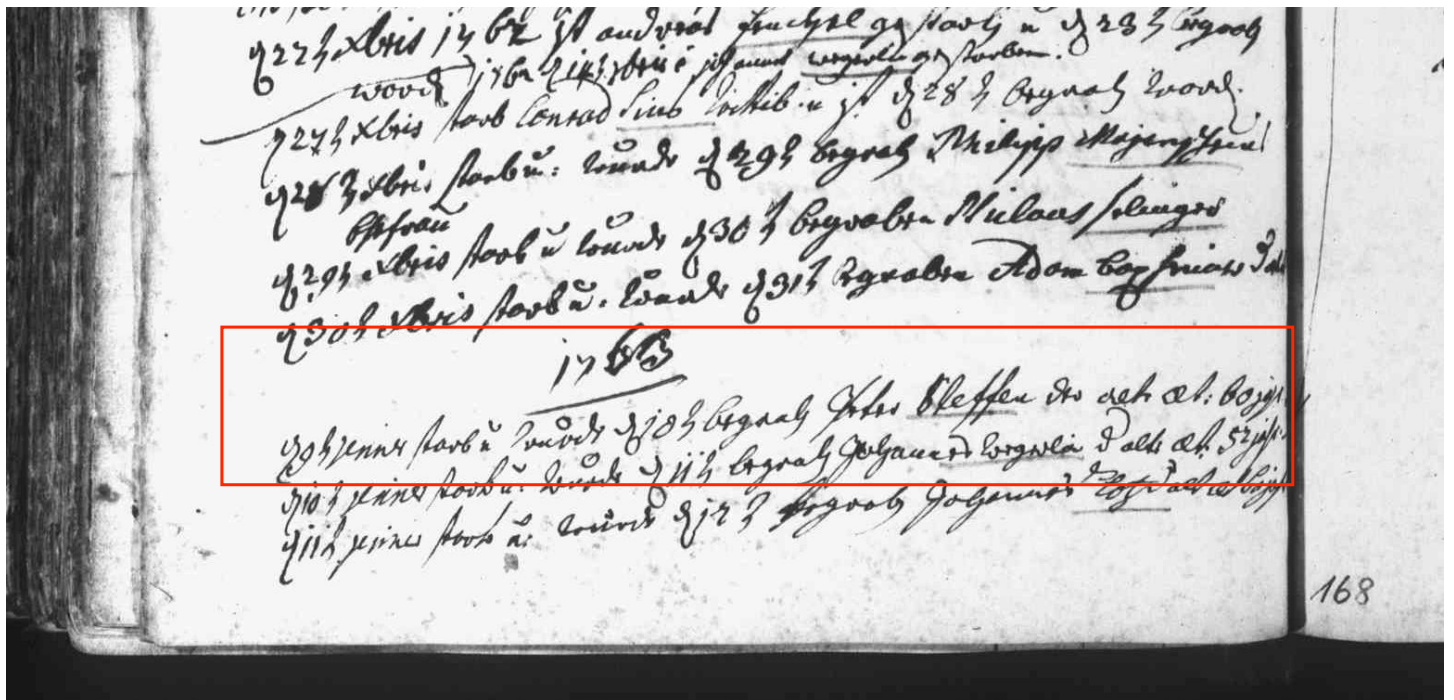 d 22t Xbris 1762 ist andreas gestorb u d 23t begrab
word 1762 d 14t Xbris Johannes wegerlin gestorben.
d 27t Xbris starb Conrad u ist d 28t begrab word.
d 28t Xbris starb u: wurde d 29t begrab Philipp
Ehefrau
d 29t Xbris starb u wurde d 30t begraben Niclaas
d 30t Xbris starb u. wurde d 31t begraben Adam
1763
d 9t jenner starb u wurde d 10t begrab Peter Steffen der alt æt: 60 jahr
d 10t jenner starb u: wurde d 11t begrab Johannes wegerlin d alte æt: 52 jahr
d 11t jenner starb u: wurde d 12t begrab Johannes d alt æt
168